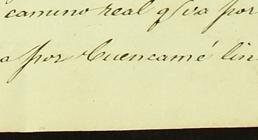 camino real q/va por
a por Cuencamé lin